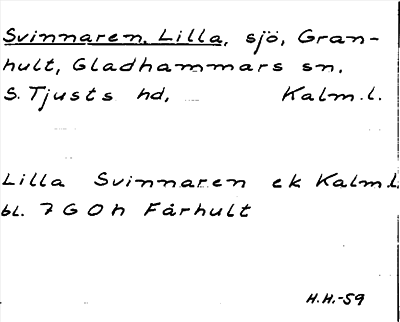 Svinnaren, Lilla, sjö, Gran-
hult, Gladhammars sn.
S. Tjusts hd, Kalm.l.
Lilla Svinnaren ek Kalm.l.
bl. 7 G 0 h Fårhult
H.H.-59